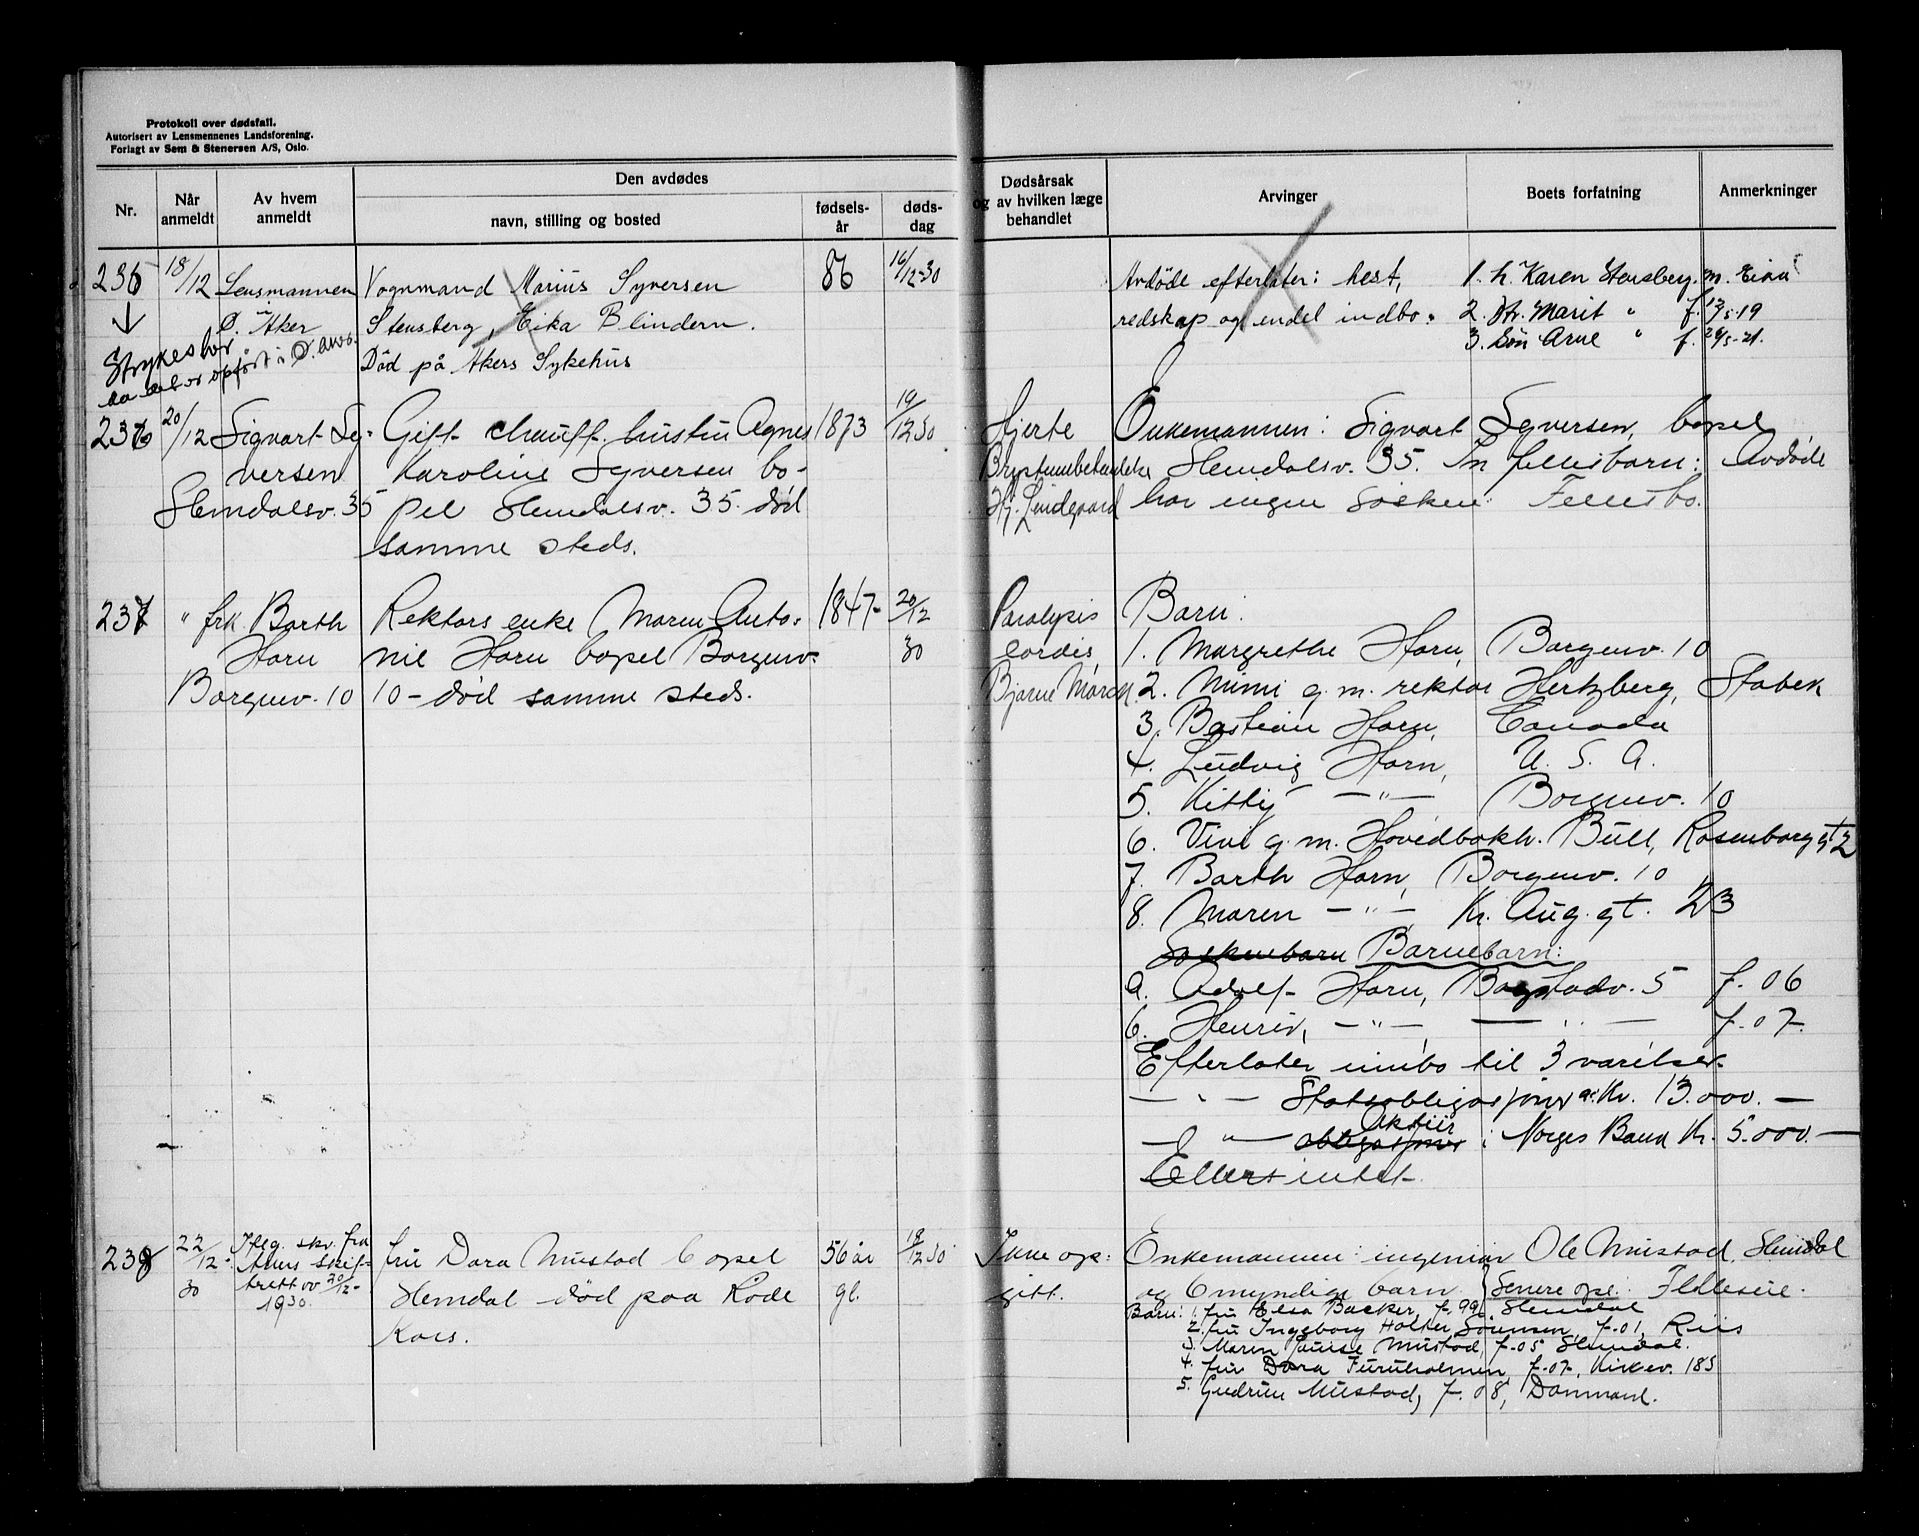 Protokoll over dødsfall.
Autorisert av Lensmennenes Landsforening.
Forlagt av Sem & Stenersen A/S, Oslo.
Nr.
Når anmeldt
Av hvem anmeldt
Den avdødes
navn, stilling og bosted
fødselsår
dødsdag
Dødsårsak og av hvilken læge behandlet
Arvinger
Boets forfatning
Anmerkninger
236 18/12 Lensmannen Vognmand Marius Syversen 86 16/12-30
Ø. Aker Stensberg, Eika Blindern.
Strykes her Død på Akers Sykehus
da det er opført i Ø. Aker
Avdøde efterlater: hest, 1. h. Karen Stensberg, m. Eika
redskap og endel indbo. 2. Dtr. Marit " f. 13/5-19
3. Søn Arne " f. 26/5-21.
237 20/12 Sigvart Sy- Gift chauff. hustru Agnes 1873 19/12 30
versen Karoline Syversen bo-
Slemdalsv. 35 pel Slemdalsv. 35. død
samme steds.
Hjerte Enkemannen: Sigvart Syversen, bopel
Slemdalsv. 35. In fellesbarn: Avdøde
Hj. Lindgaard har ingen søsken. Fellesbo.
237 " frk. Barth Rektors enke Maren Anto- 1847- 20/12
Horn nie Horn bopel Borgenv. 30
Borgenv. 10 10 - død samme steds.
Paralysis Barn:
cordis, 1. Margrethe Horn, Borgenv. 10
Bjarne Marck 2. Mimi g. m. rektor Hertzberg, Stabek
3. Bastian Horn, Canada
4. Ludvig Horn, U. S. A.
5. Kitty — " — Borgenv. 10
6. Vivi g. m. Hovedbokh. Bull, Rosenborg gt 2
7. Barth Horn, Borgenv. 10
8. Maren — " — Kr. Aug. gt. 23
Søskenbarn Barnebarn:
a. Adolf Horn, Bogstadv. 5 f. 06
b. Henrik, — " — — " — f. 07.
Efterlater innbo til 3 værelser
— " — Statsobligasjoner a Kr. 13.000.—
— " — obligasjoner Aktier i Norges Bank Kr. 5.000.—
Ellers intet.
238 22/12-30 Iflg. skr. fra fru Dora Mustad bopel 56 år 18/12 30
Akers skif- Slemdal død paa Røde gl.
terett av 20/12- Kors.
1930.
Ikke op- Enkemannen: ingeniør Ole Mustad, Slemdal
gitt. og 6 myndige barn Senere opg. Felleseie.
Barn: 1. fru Elsa Backer, f. 99, Slemdal
2. fru Ingeborg Holter Sørensen, f. 01, Riis
3. Maren Louise Mustad, f. 05 Slemdal.
4. fru Dora Furuholmen, f. 07, Kirkev. 183
5. Gudrun Mustad, f. 08, Danmark.